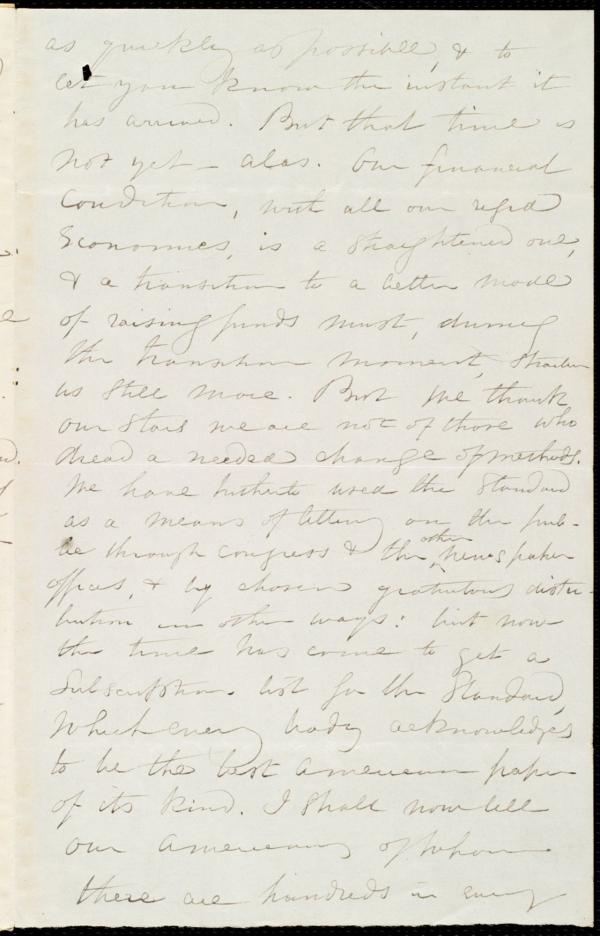 as quickly as possible, & to
let you know the instant it
has arrived. But that time is
not yet - alas. Our financial
Condition, with all our rigid
Economies, is a straightened one,
& a transition to a better mode
of raising funds must, during
the transition moment, straiten
us still more. But we thank
our stars we are not of those who
dread a needed change of methods.
We have hitherto used the Standard
as a means of letting on the pub-
lic through Congress & the other newspaper
offices, & by chosen gratuitous distri-
bution in other ways: but now
the time has come to get a
Subscription-list for the Standard,
which every body acknowledges
to be the best American paper
of its kind. I shall now tell
our Americans, of whom
there are hundreds in every